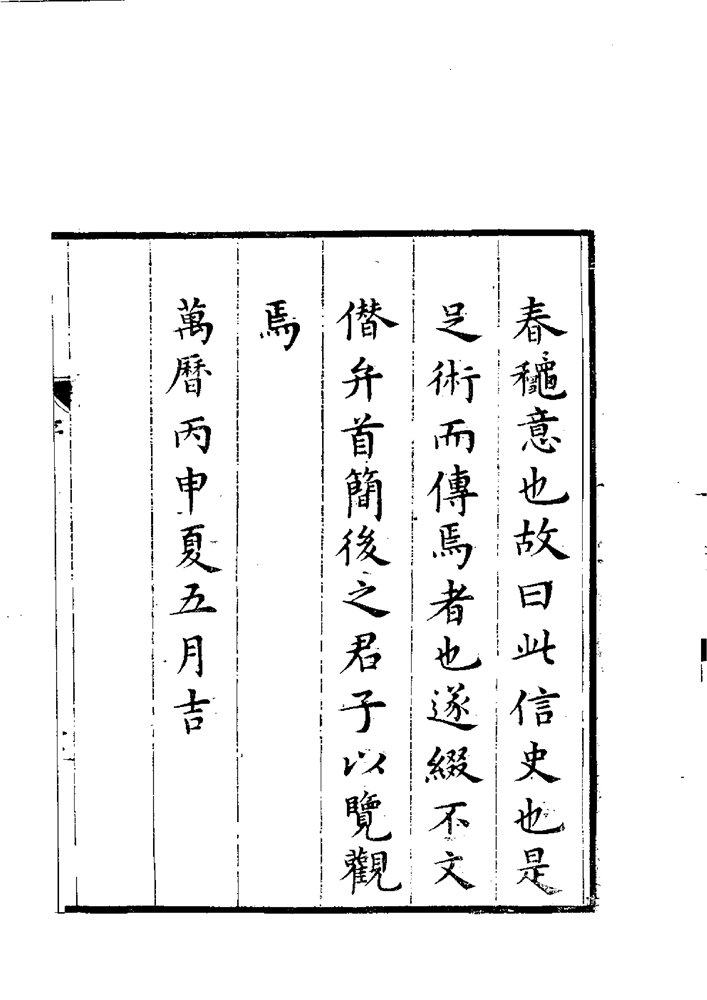 春龝意也故曰此信史也是
足術而傳焉者也遂綴不文
僭弁首簡後之君子以覽觀
焉
萬曆丙申夏五月吉